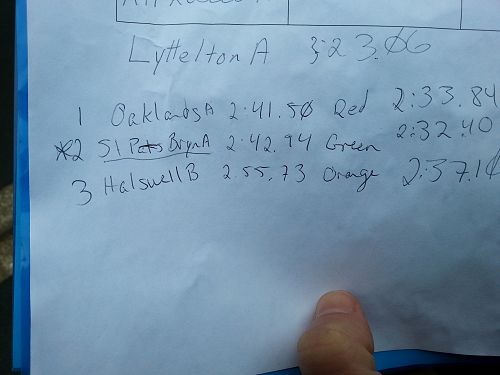 Lyttelton A 3:23.06
1 Oaklands A 2:41.50 Red 2:33.84
*2 St Pats Bryn A 2:42.94 Green 2:32.40
3 Halswell B 2:55.73 Orange 2:37.10